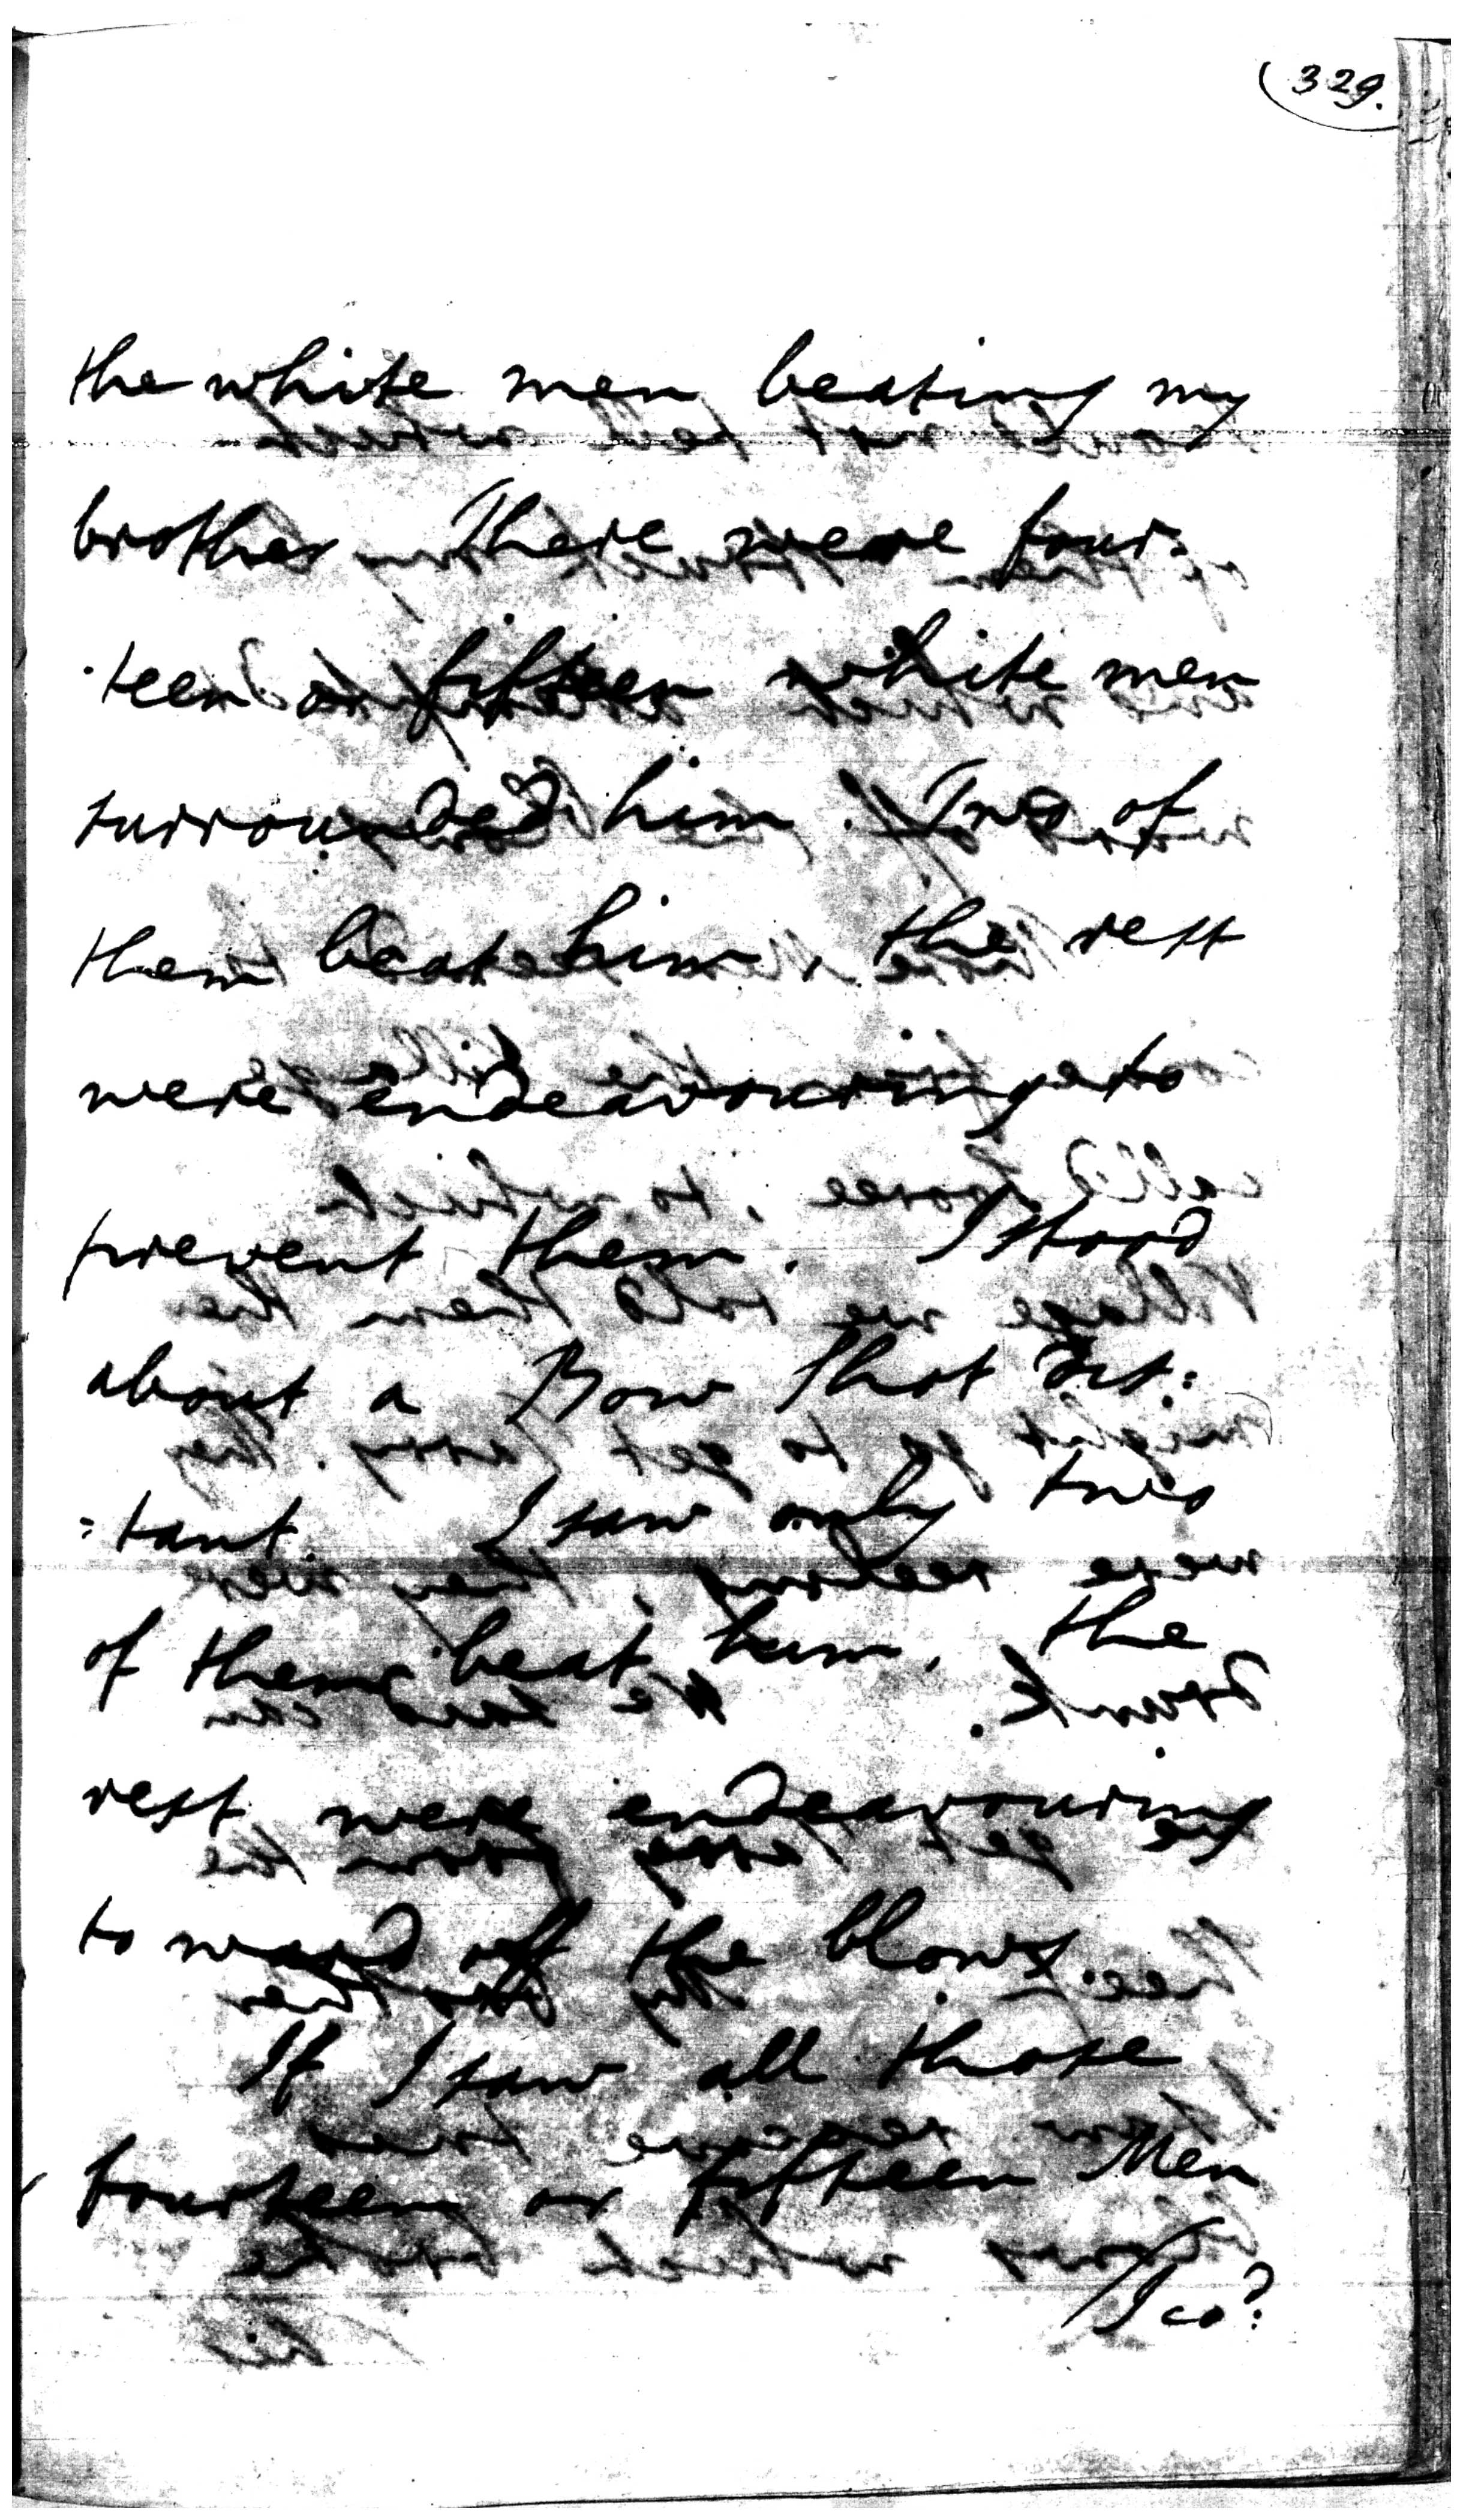 (329.
the white men beating my
brother There were four:
:teen or fifteen white men
surrounded him. Two of
them beat him, the rest
were endeavouring to
prevent them. I stood
about a Bow Shot dis:
:tant. I saw only two
of them beat him, the
rest were endeavouring
to ward off the blows.
If I saw all those
fourteen or fifteen Men
I co.d: